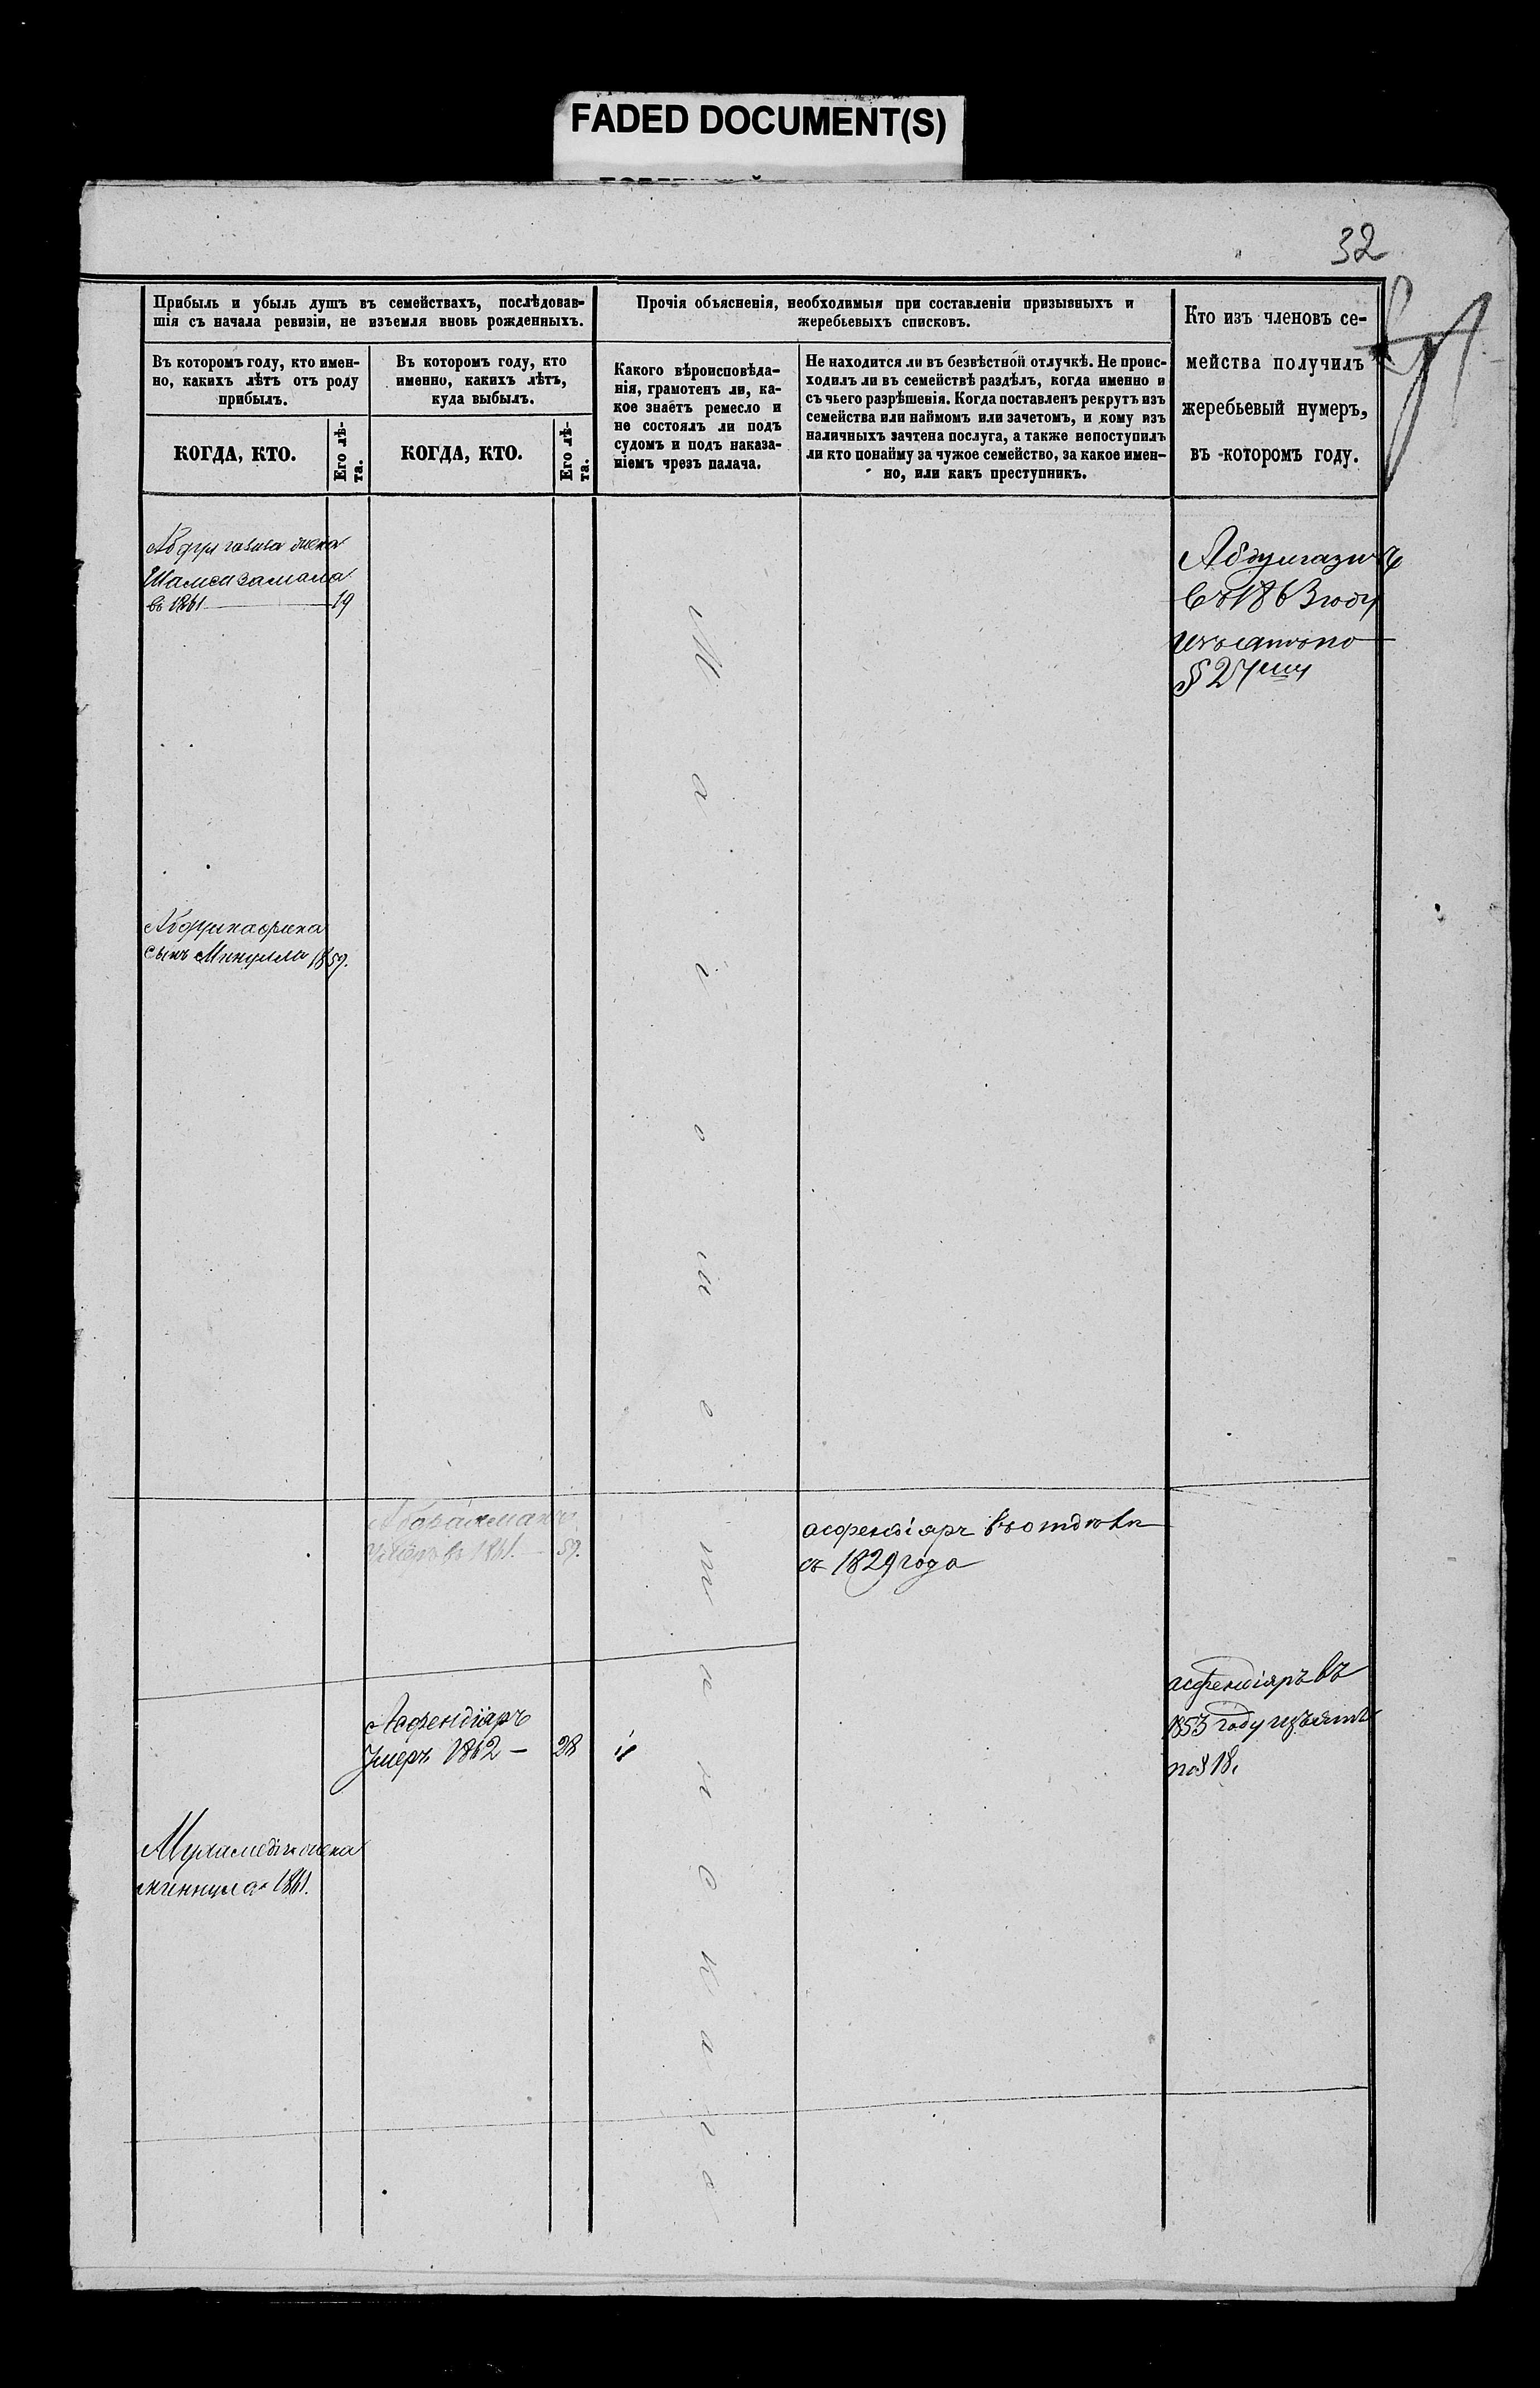 FADED DOCUMENT(S)
32
Прибыль и убыль душъ въ семействахъ, послѣдовав-
шія съ начала ревизіи, не изъемля вновь рожденныхъ.
Въ которомъ году, кто имен-
но, какихъ лѣтъ отъ роду
прибылъ.
КОГДА, КТО.
Его лѣ-
та.
Въ которомъ году, кто
именно, какихъ лѣтъ,
куда выбылъ.
КОГДА, КТО.
Его лѣ-
та.
Прочія объясненія, необходимыя при составленіи призывныхъ и
жеребьевыхъ списковъ.
Какого вѣроисповѣда-
нія, грамотенъ ли, ка-
кое знаетъ ремесло и
не состоялъ ли подъ
судомъ и подъ наказа-
ніемъ чрезъ палача.
Не находится ли въ безвѣстной отлучкѣ. Не проис-
ходилъ ли въ семействѣ раздѣлъ, когда именно и
съ чьего разрѣшенія. Когда поставленъ рекрутъ изъ
семейства или наймомъ или зачетомъ, и кому изъ
наличныхъ зачтена послуга, а также непоступилъ
ли кто понайму за чужое семейство, за какое имен-
но, или какъ преступникъ.
Кто изъ членовъ се-
мейства получилъ
жеребьевый нумеръ,
въ которомъ году.
жена
въ 1861 19
сынъ 1859.
Магометанскаго
умеръ въ 1861. 59.
асфендіяръ
съ 1829 года
Асфендіяръ
умеръ 1862 — 28
жена
1861.
въ 1863 году
изъятъ по
§ 27
асфендіяръ въ
1853 году изъятъ
по § 18.